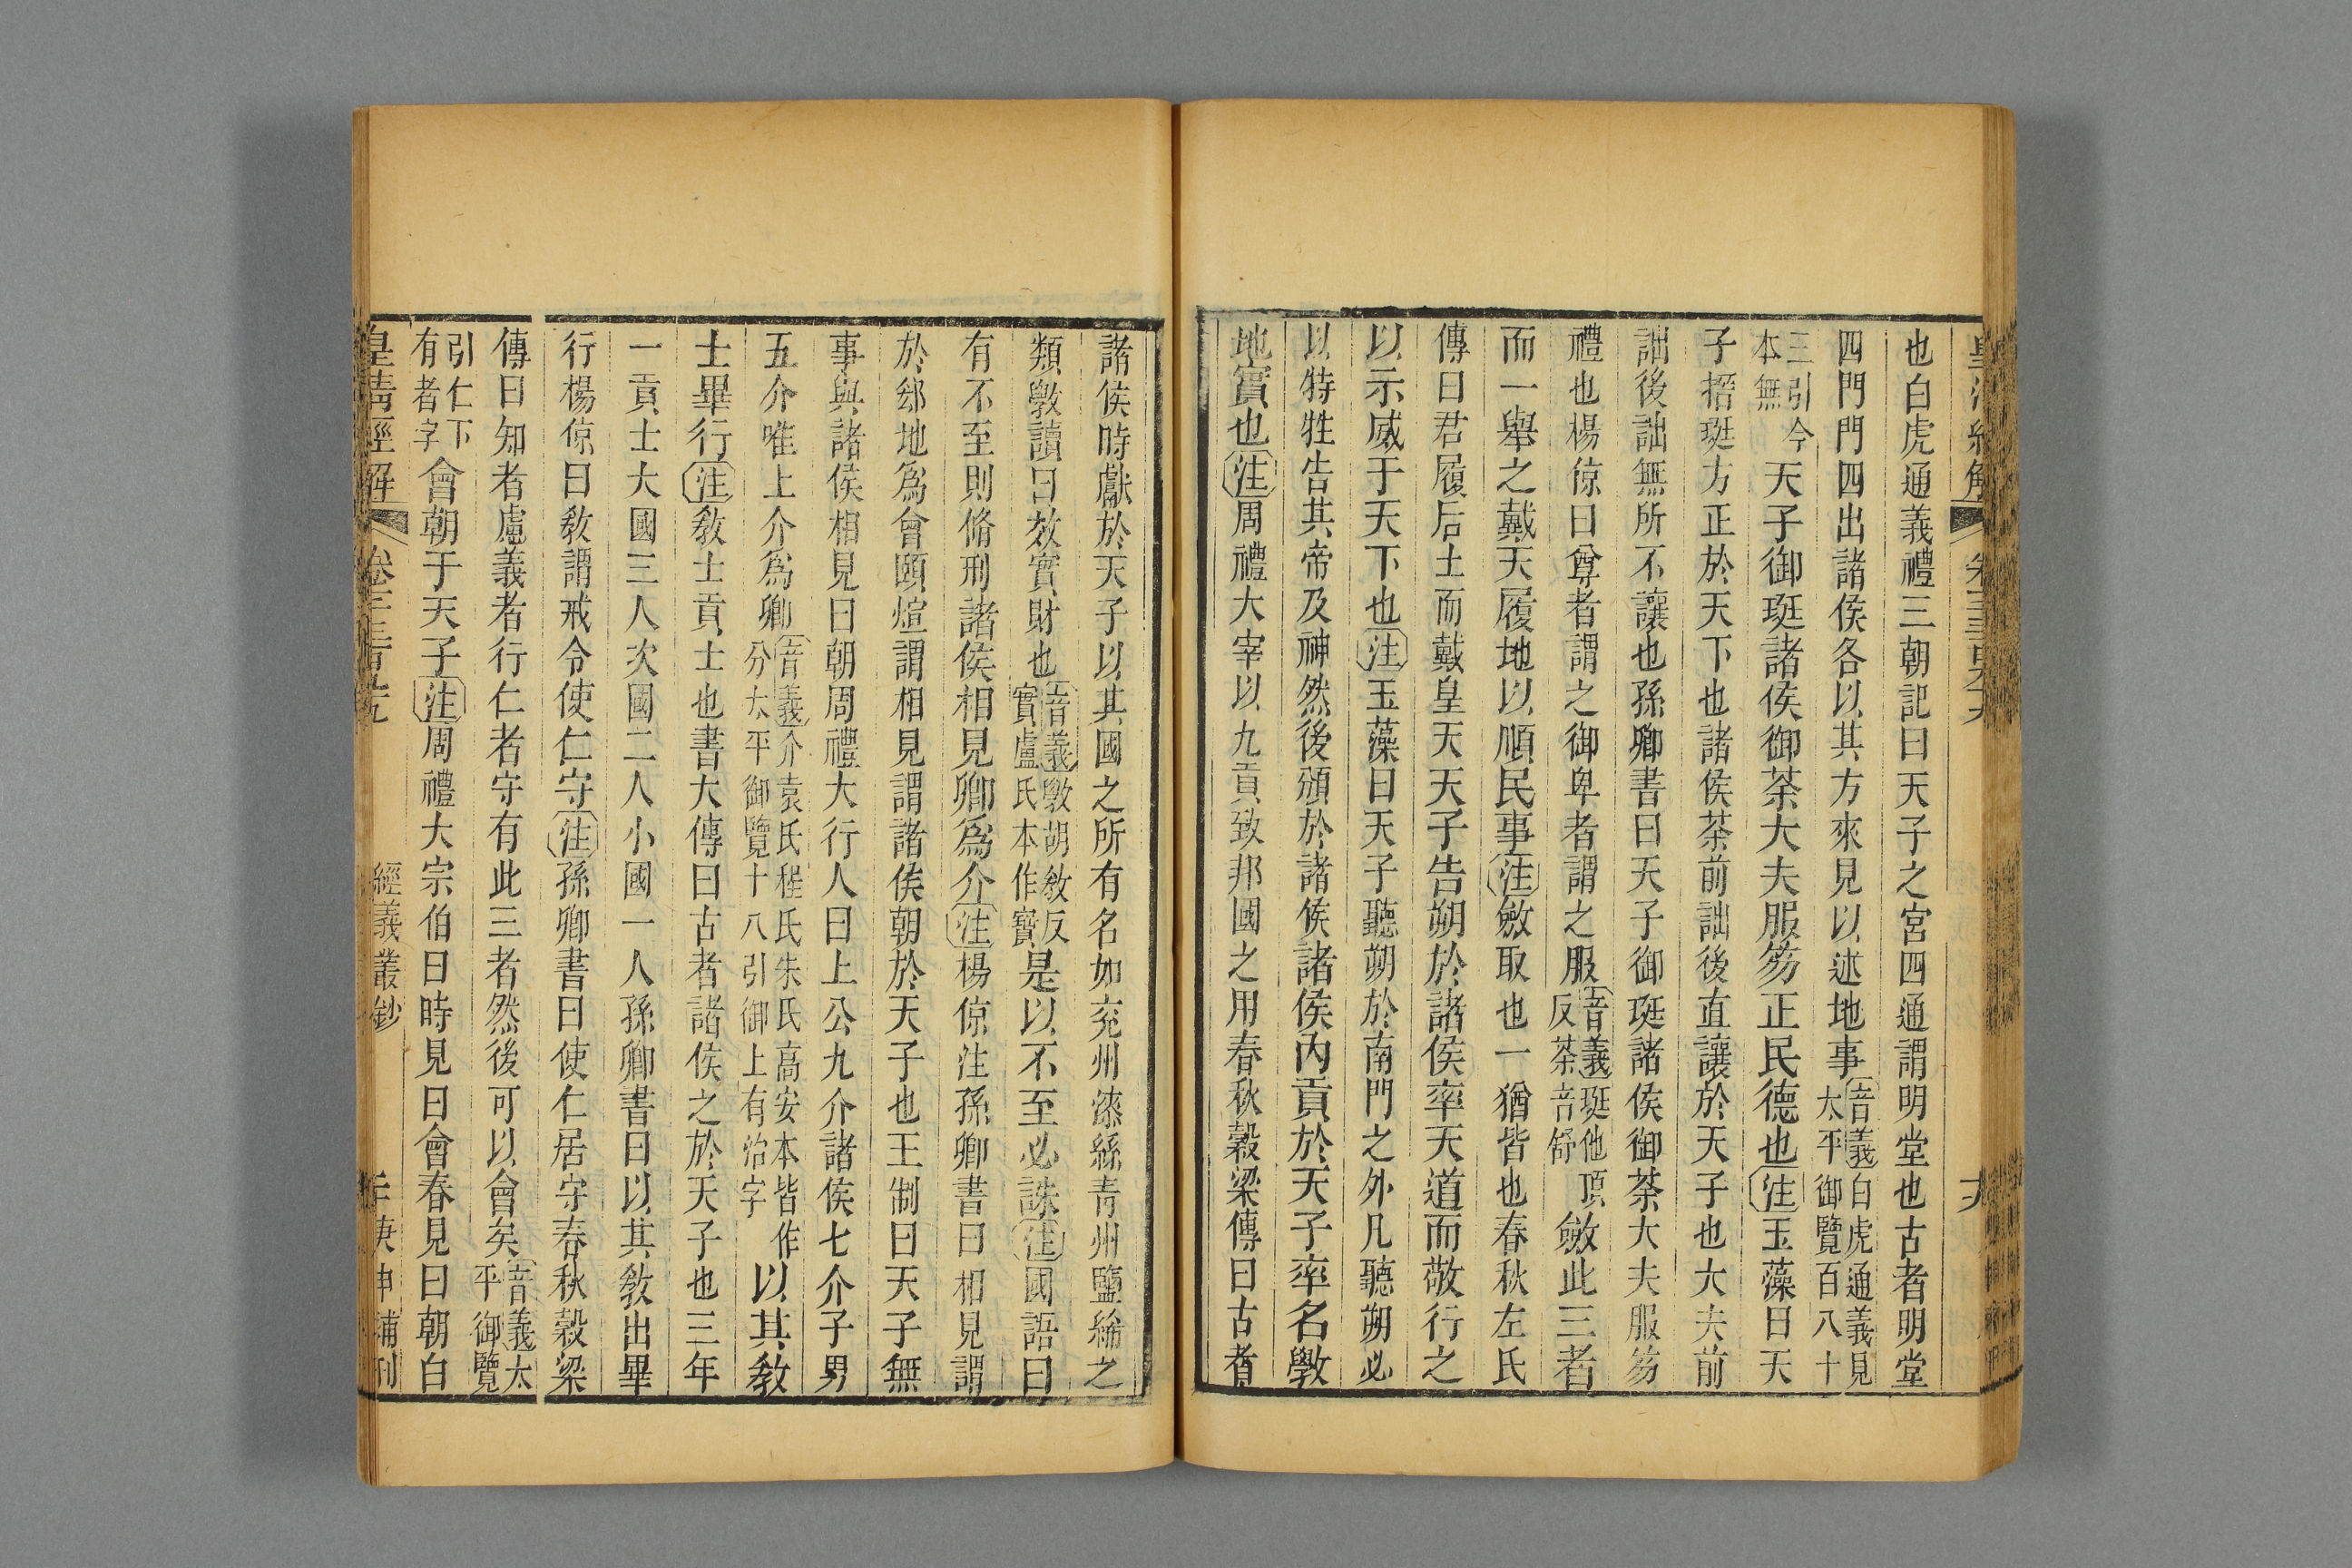 也白虎通義禮三朝記曰天子之宮四通謂明堂也古者明堂
四門門四出諸侯各以其方來見以述地事音義白虎通義見太平御覽百八十
三引今本無天子御珽諸侯御荼大夫服笏正民德也注玉藻曰天
子搢珽方正於天下也諸侯荼前詘後直讓於天子也大夫前
詘後詘無所不讓也孫卿書曰天子御珽諸侯御荼大夫服笏
禮也楊倞曰尊者謂之御卑者謂之服音義珽他頂反荼音舒斂此三者
而一舉之戴天履地以順民事注斂取也一猶皆也春秋左氏
傳曰君履后土而戴皇天天子告朔於諸侯率天道而敬行之
以示威于天下也注玉藻曰天子聽朔於南門之外凡聽朔必
以特牲告其帝及神然後頒於諸侯諸侯內貢於天子率名斆
地實也注周禮大宰以九貢致邦國之用春秋穀梁傳曰古者
諸侯時獻於天子以其國之所有名如兖州漆絲青州鹽絺之
類斆讀曰效實財也音義斆胡敎反實盧氏本作賓是以不至必誅注國語曰
有不至則脩刑諸侯相見卿爲介注楊倞注孫卿書曰相見謂
於郄地爲會頤煊謂相見謂諸侯朝於天子也王制曰天子無
事與諸侯相見曰朝周禮大行人曰上公九介諸侯七介子男
五介唯上介爲卿音義介袁氏程氏朱氏高安本皆作分太平御覽十八引御上有治字以其敎
士畢行注敎士貢士也書大傳曰古者諸侯之於天子也三年
一貢士大國三人次國二人小國一人孫卿書曰以其敎出畢
行楊倞曰敎謂戒令使仁守注孫卿書曰使仁居守春秋穀梁
傳曰知者慮義者行仁者守有此三者然後可以會矣音義太平御覽
引仁下有者字會朝于天子注周禮大宗伯曰時見曰會春見曰朝白
皇清經解 經義叢鈔 庚申補刊